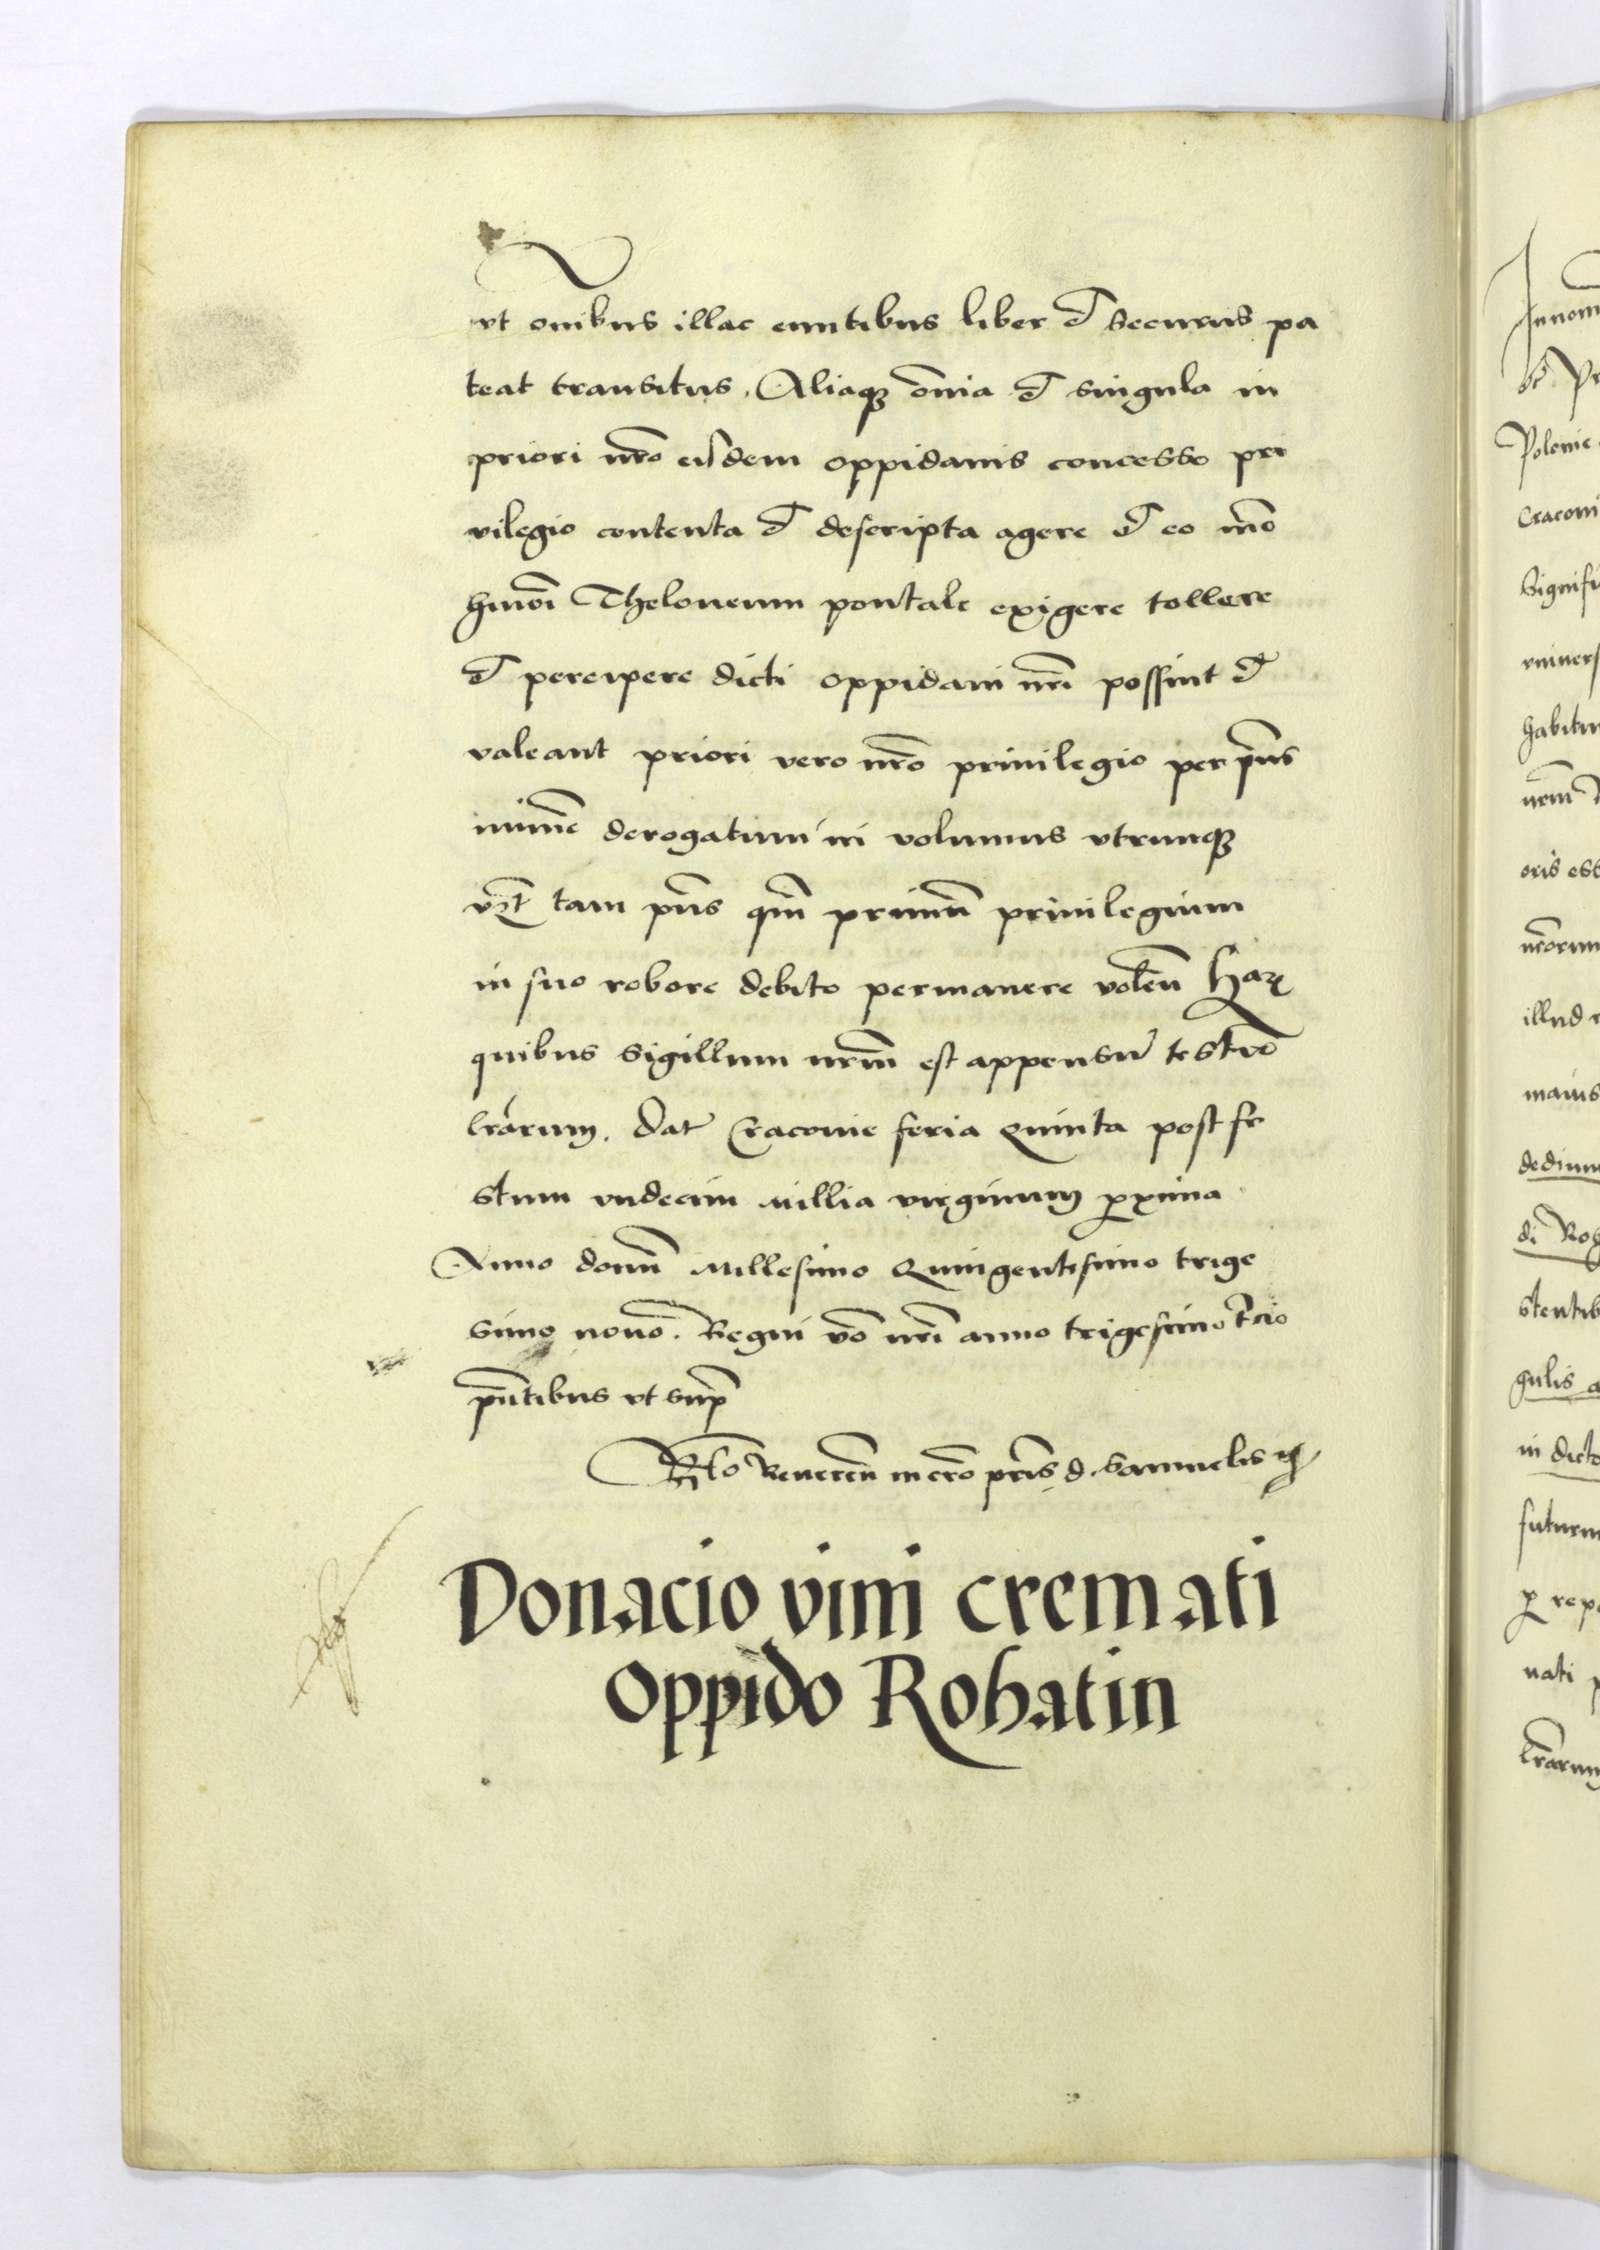 vt om̅ibus illac euntibus liber et securus pa
teat transitus. Aliaqꝫ om̅ia et singula in
priori nr̅o eisdem oppidanis concesso pri
vilegio contenta et descripta agere et eo mo̅
hmo̅i Theloneum pontale exigere tollere
et percipere dicti oppidani nr̅i possint et
valeant priori vero nr̅o priuilegio per pn̅s
mime̅ derogatum iri volumus vtrumqꝫ
vꝫt tam pn̅s qm̅ primu̅ priuilegium
in suo robore debito permanere volen̅ Harꝝ
quibus sigillum nrm̅ est appensu̅ testio̅
lr̅arum. Dat Cracouie feria Quinta post fe
stum vndecim Millia virginum ꝓxima
Anno domi̅ Millesimo Quingentesimo trige
simo nono. Regni vo̅ nr̅i anno trigesimo tercio
pn̅tibus vt supra
Rlo̅ Reueren̅ in cro̅ pr̅is d. Samuelis
Donacio vini cremati
Oppido Rohatin
Polonie
Cracoui
Signifi
vniuers
habitur
nrm̅
oris ess
nr̅orum
illud
maius
dedimu
di Roh
stentib
gulis a
in dicto
futuru
ꝑ rep
nati
lr̅arum